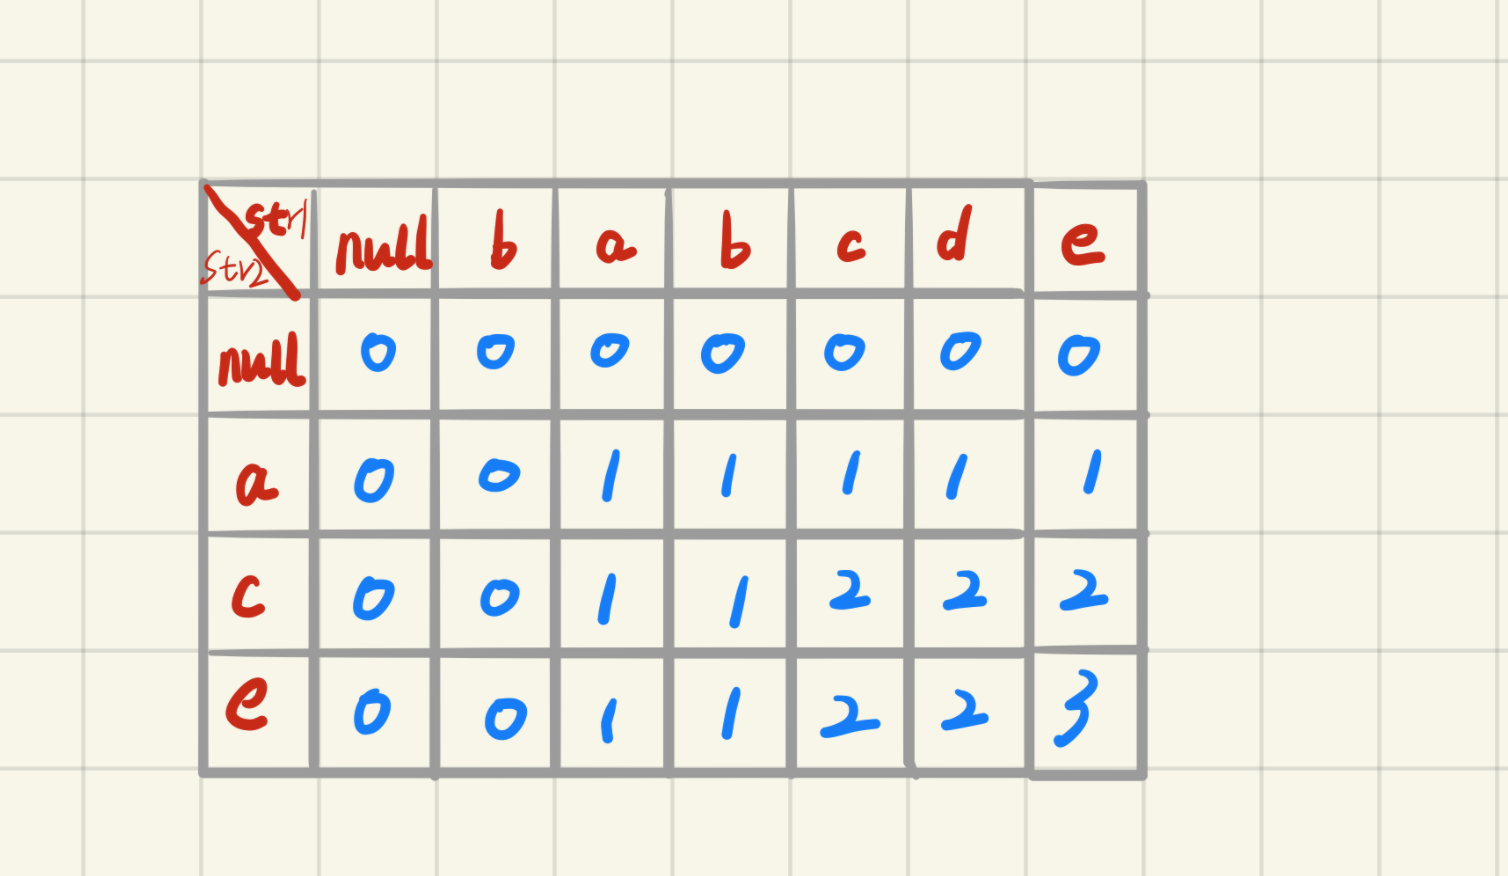 str1
str2
null b a b c d e
null 0 0 0 0 0 0 0
a 0 0 1 1 1 1 1
c 0 0 1 1 2 2 2
e 0 0 1 1 2 2 3